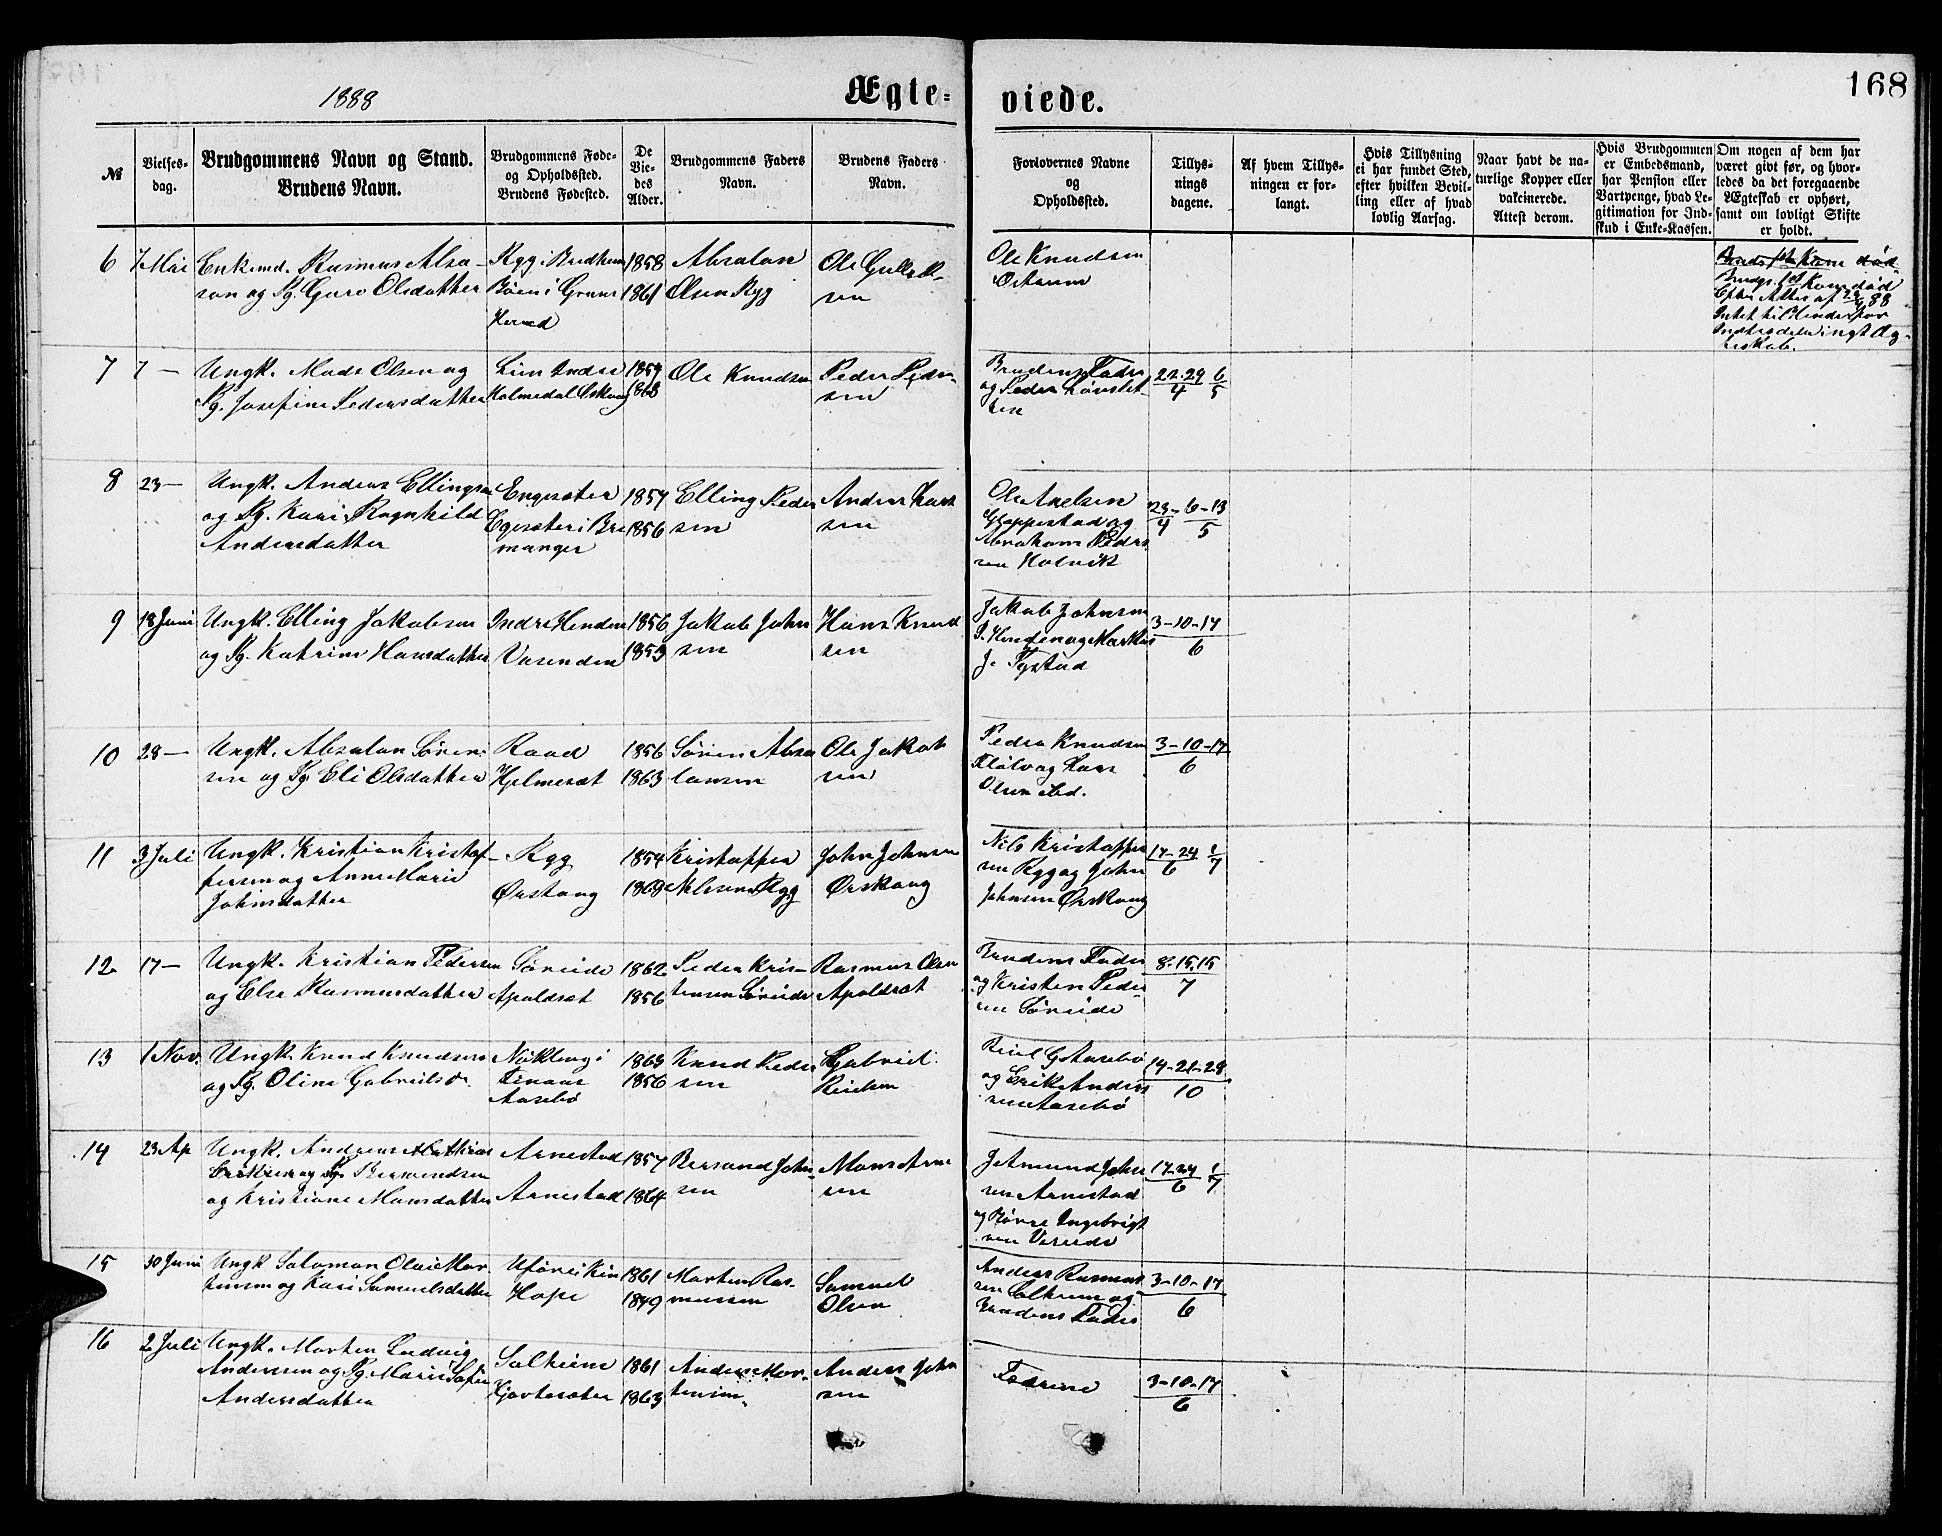 1888
Ægte=
viede.
168
№
Vielses-
dag.
Brudgommens Navn og Stand.
Brudens Navn.
Brudgommens Føde-
og Opholdssted.
Brudens Fødested.
De
Vie-
des
Alder.
Brudgommens Faders
Navn.
Brudens Faders
Navn.
Forlovernes Navne
og
Opholdssted.
Tillys-
nings
dagene.
Af hvem Tillys-
ningen er for-
langt.
Hvis Tillysning
ei har fundet Sted,
efter hvilken Bevil-
ling eller af hvad
lovlig Aarsag.
Naar havt de na-
turlige Kopper eller
vakcinerede.
Attest derom.
Hvis Brudgommen
er Embedsmand,
har Pension eller
Vartpenge, hvad Le-
gitimation for Ind-
skud i Enke-Kassen.
Om nogen af dem har
været givt før, og hvor-
ledes da det foregaaende
Ægteskab er ophørt,
samt om lovligt Skifte
er holdt.
6
7 Mai
Enkemd. Rasmus Absa-
son og Pg. Guro Olsdatter
Ryg i Bredheim
1858
1861
Absalon
Olsen Ryg
Ole
sen
Ole Knudsen
7
7 —
Ungk. Mads Olsen og
Pg. Josefine Pedersdatter
Holmedal
1868
Ole Knudsen
Peder Peder-
sen
Brudens Fader
og Peder
22-29 6
4 5
8
23 —
Ungk. Anders Ellingsen
og Pg. Kari Ragnhild
Andersdatter
Engesæter
i Bre
manger
1857
1856
Elling Peder
sen
Anders Lars
sen
Ole Axelsen
og
Abraham Peder
sen
23- 6-13
4 5
9
18 Juni
Ungk. Elling Jakobsen
og Pg. Katrine Hansdatter
Indre Henden
Vasenden
1856
1853
Jakob John
sen
Hans Knud
sen
Jakob Johnsen
I. Henden og Markus
J. Tystad
3-10-17
6
10
28 —
Ungk. Absalon Søren-
sen og Pg Eli Olsdatter
Raad
Hjelmeset
1856
1863
Søren Absa
lonsen
Ole Jakob
sen
Peder Knudsen
og Lars
Olsen ibd.
3-10-17
6
11
3 Juli
Ungk. Kristian Kristof-
fersen og Anne Marie
Johnsdatter
Ryg
Ørskoug
1854
1869
Kristoffer
Nilsen Ryg
John Johnsen
Ørskoug
Nils Kristoffer
sen Ryg og John
Johnsen Ørskoug
17-24 1
6 7
12
17 —
Ungk. Kristian Pedersen
og Else Rasmusdatter
Søreide
Apaldset
1862
1856
Peder Kris-
tensen Søreide
Rasmus Olsen
Apaldset
Brudens Fader
og Kristen Peder
sen Søreide
8-15.15
7
13
1 Nov.
Ungk. Knud Knudsen
og Pg. Oline Gabrielsdr
Aasebø
1863
1856
Knud Peder
sen
Gabriel
G Aasebø
og Erik Anders
sen Aasebø
14-21-28
10
14
23 Ap
Ungk. Andreas Mathias
og Kristiane Monsdatter
Arnestad
Arnestad
1857
1864
Bersvend John-
sen
Mons Arne
sen
John
sen Arnestad
og Børre Ingebrigt
sen Vereide
17-24 1
6 7
15
30 Juni
Ungk Salomon Olai Mor
tensen og Kari Samuelsdatter
Hope
1861
1849
Morten Ras
mussen
Samuel
Olsen
Anders Rasmus
sen Solheim og
Brudens Fader
3-10-17
6
16
2 Juli
Ungk. Morten Ludvig
Andersen og Pg. Marie Sofie
Andersdatter
Solheim
Hjortesæter
1861
1863
Anders Mor-
tensen.
Anders John
sen
Fædrene
3-10-17
6